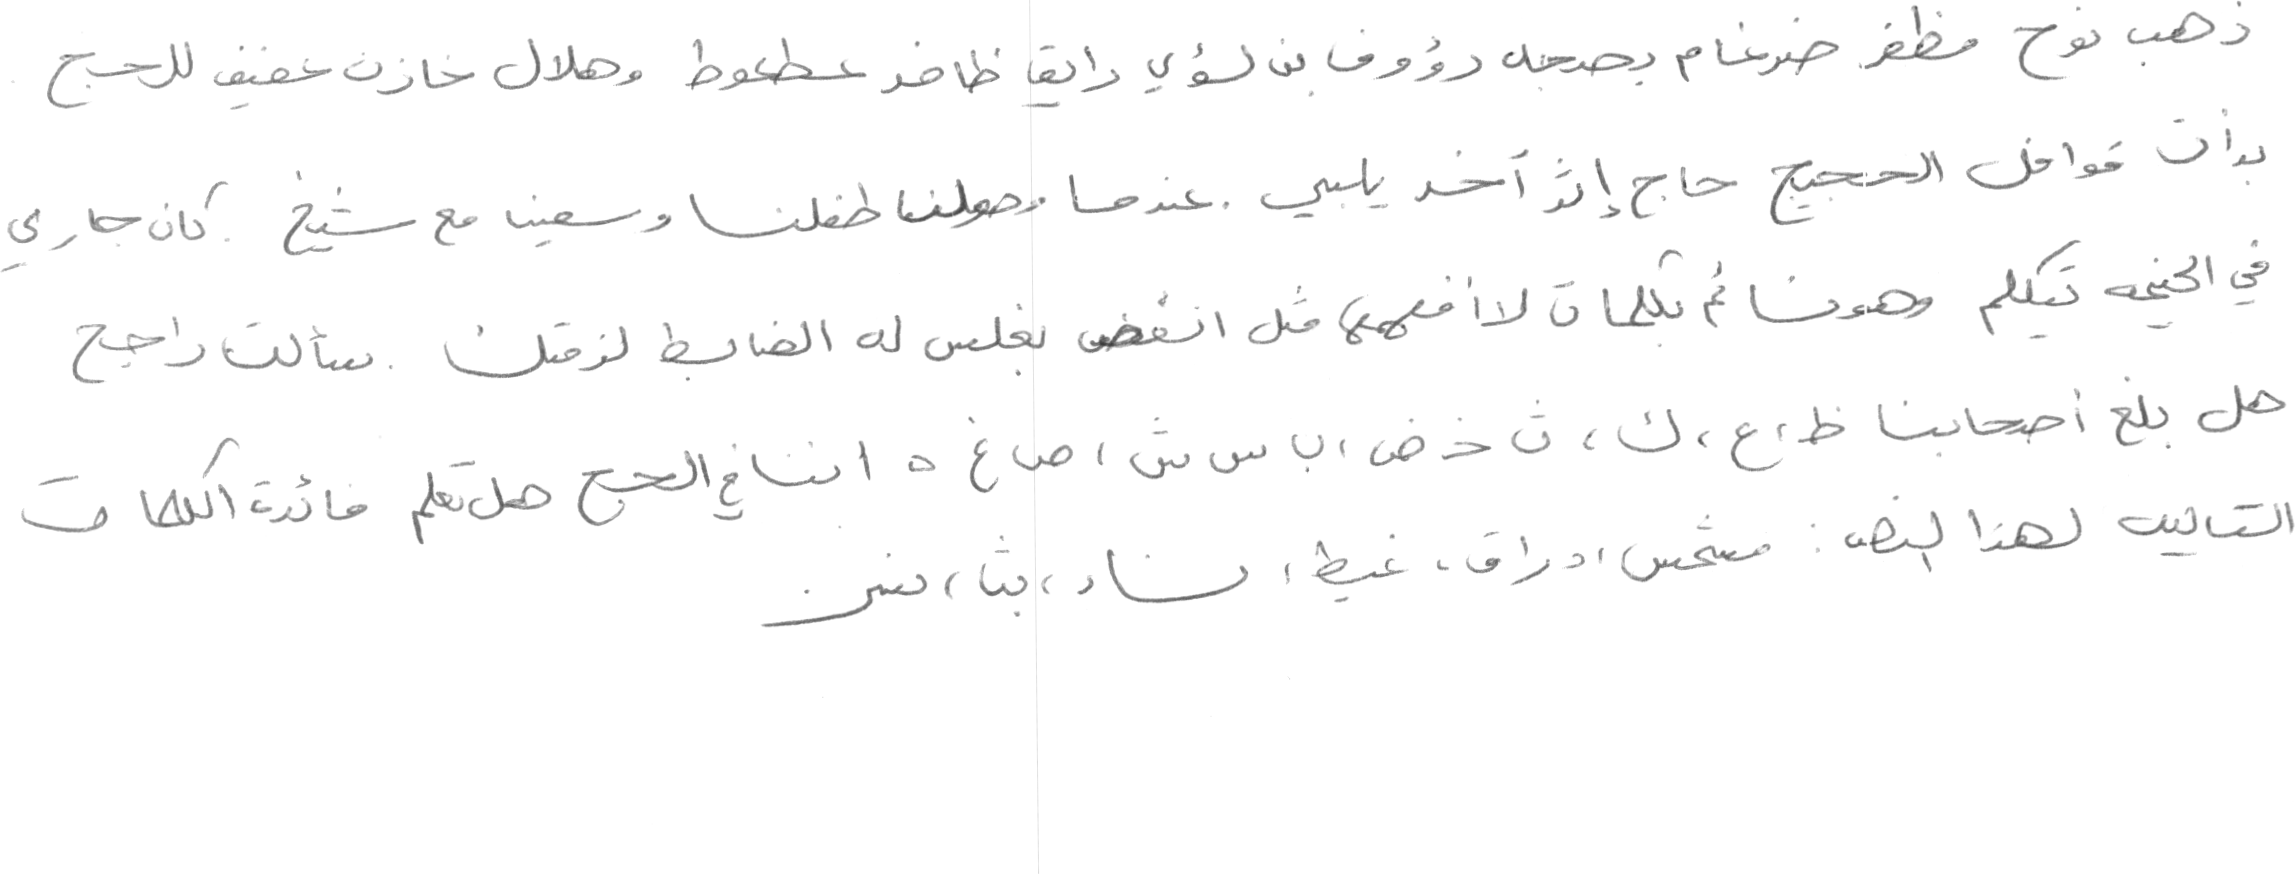 ذهب نوح مظفر ضرغام بصحبه رؤوف بن لؤي رائق ظافر عطعوط وهلال خازن عفيف للحج
بدأت قوافل الحجيج حاج إثر آخر يلبي . عندما وصلنا طفلنا وسعينا مع شيخ . كان جاري
في الخيمه تيكلم وهو نائم بكلمات لا أفهمها مثل انقض بغلس له الضابط لزمتك . سألت راجح
هل بلغ أصحابنا ظ ، ع ، ك ، ث خ ض ، ب س ش ، ص غ ه اننا في الحج هل تعلم فائدة الكلمات
التاليه لهذا النص : مشمس ، وراق ، غيط ، ساد ، بث ،